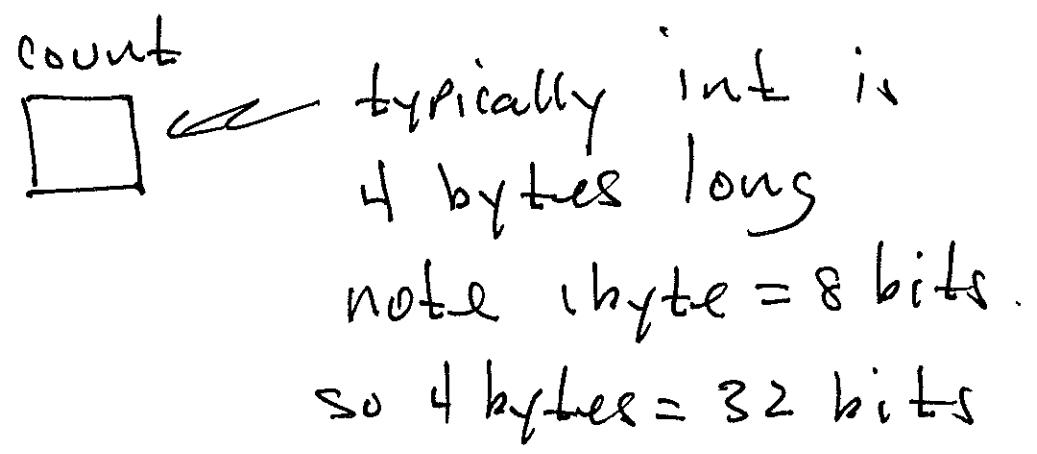 count
typically int is
4 bytes long
note 1byte = 8 bits.
so 4 bytes = 32 bits